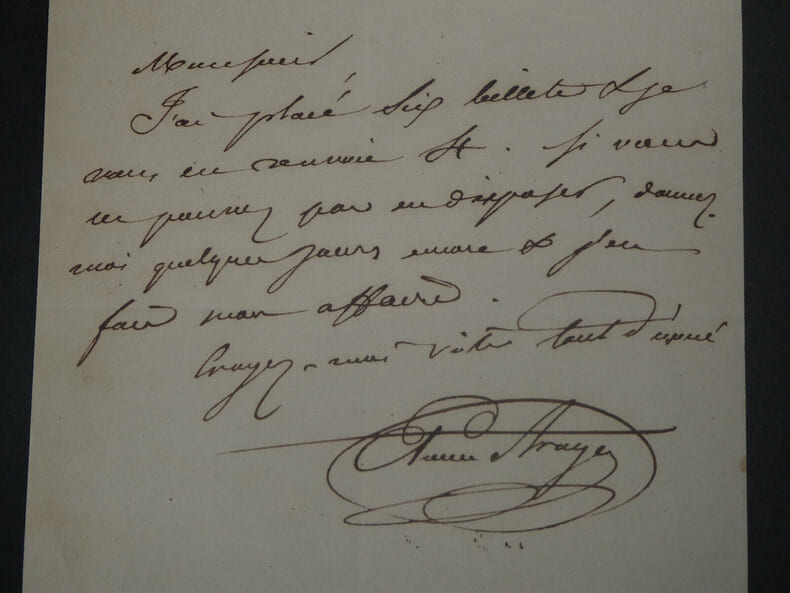 Monsieur,
J'ai placé six billets & je
vous en renvoie 4. Si vous
ne pouvez pas en disposer, donnez
moi quelques jours encore & j'en
fais mon affaire.
Croyez-moi votre tout dévoué